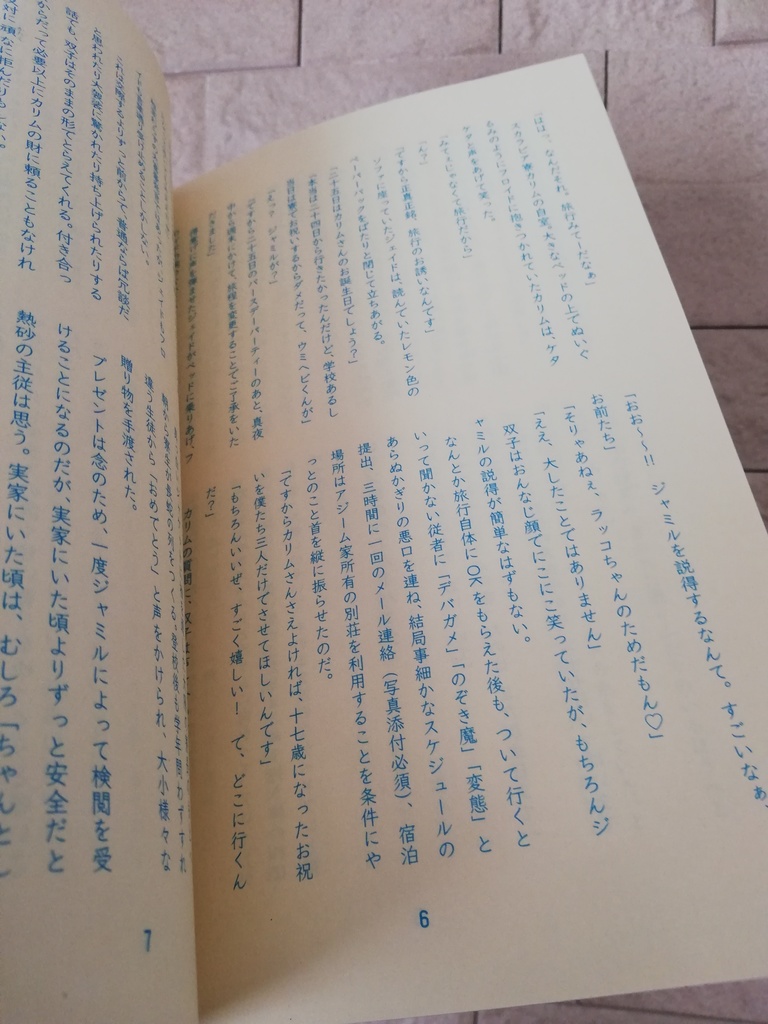 「ははっ、なんだそれ。旅行みてーだなぁ」
スカラビア寮カリムの自室。大きなベッドの上でぬいぐ
るみのようにフロイドに抱きつかれていたカリムは、ケタ
ケタと声をあげて笑った。
「みてぇじゃなくて旅行だから」
「ん?」
「ですから正真正銘、旅行のお誘いなんです」
ソファに座っていたジェイドは、読んでいたレモン色の
ペーパーバックをぱたりと閉じて立ちあがる。
「二十五日はカリムさんのお誕生日でしょう?」
「本当は二十四日から行きたかったんだけど、学校あるし
当日は寮でお祝いするからダメだって、ウミヘビくんが」
「えっ? ジャミルが?」
「ですから二十五日のバースデーパーティーのあと、真夜
中から週末にかけて、旅程を変更することでご了承をいた
だきました」
「おお〜〜!! ジャミルを説得するなんて。すごいなぁ、
お前たち」
「そりゃあねぇ、ラッコちゃんのためだもん♡」
「ええ、大したことではありません」
双子はおんなじ顔でにこにこ笑っていたが、もちろんジ
ャミルの説得が簡単なはずもない。
なんとか旅行自体にOKをもらえた後も、ついて行くと
いって聞かない従者に「デバガメ」「のぞき魔」「変態」と
あらぬかぎりの悪口を連ね、結局事細かなスケジュールの
提出、三時間に一回のメール連絡(写真添付必須)、宿泊
場所はアジーム家所有の別荘を利用することを条件にや
っとのこと首を縦に振らせたのだ。
「ですからカリムさんさえよければ、十七歳になったお祝
いを僕たち三人だけでさせてほしいんです」
「もちろんいいぜ、すごく嬉しい! で、どこに行くん
だ?」
カリムの質問に、双子は
6
話でも、双子はそのままの形でとらえてくれる。付き合っ
からだって必要以上にカリムの財に頼ることもなけれ
反対に頑なに拒んだりもしない。
違う生徒から「おめでとう」と声をかけられ、大小様々な
贈り物を手渡された。
プレゼントは念のため、一度ジャミルによって検閲を受
けることになるのだが、実家にいた頃よりずっと安全だと
熱砂の主従は思う。実家にいた頃は、むしろ「ちゃんとし
7